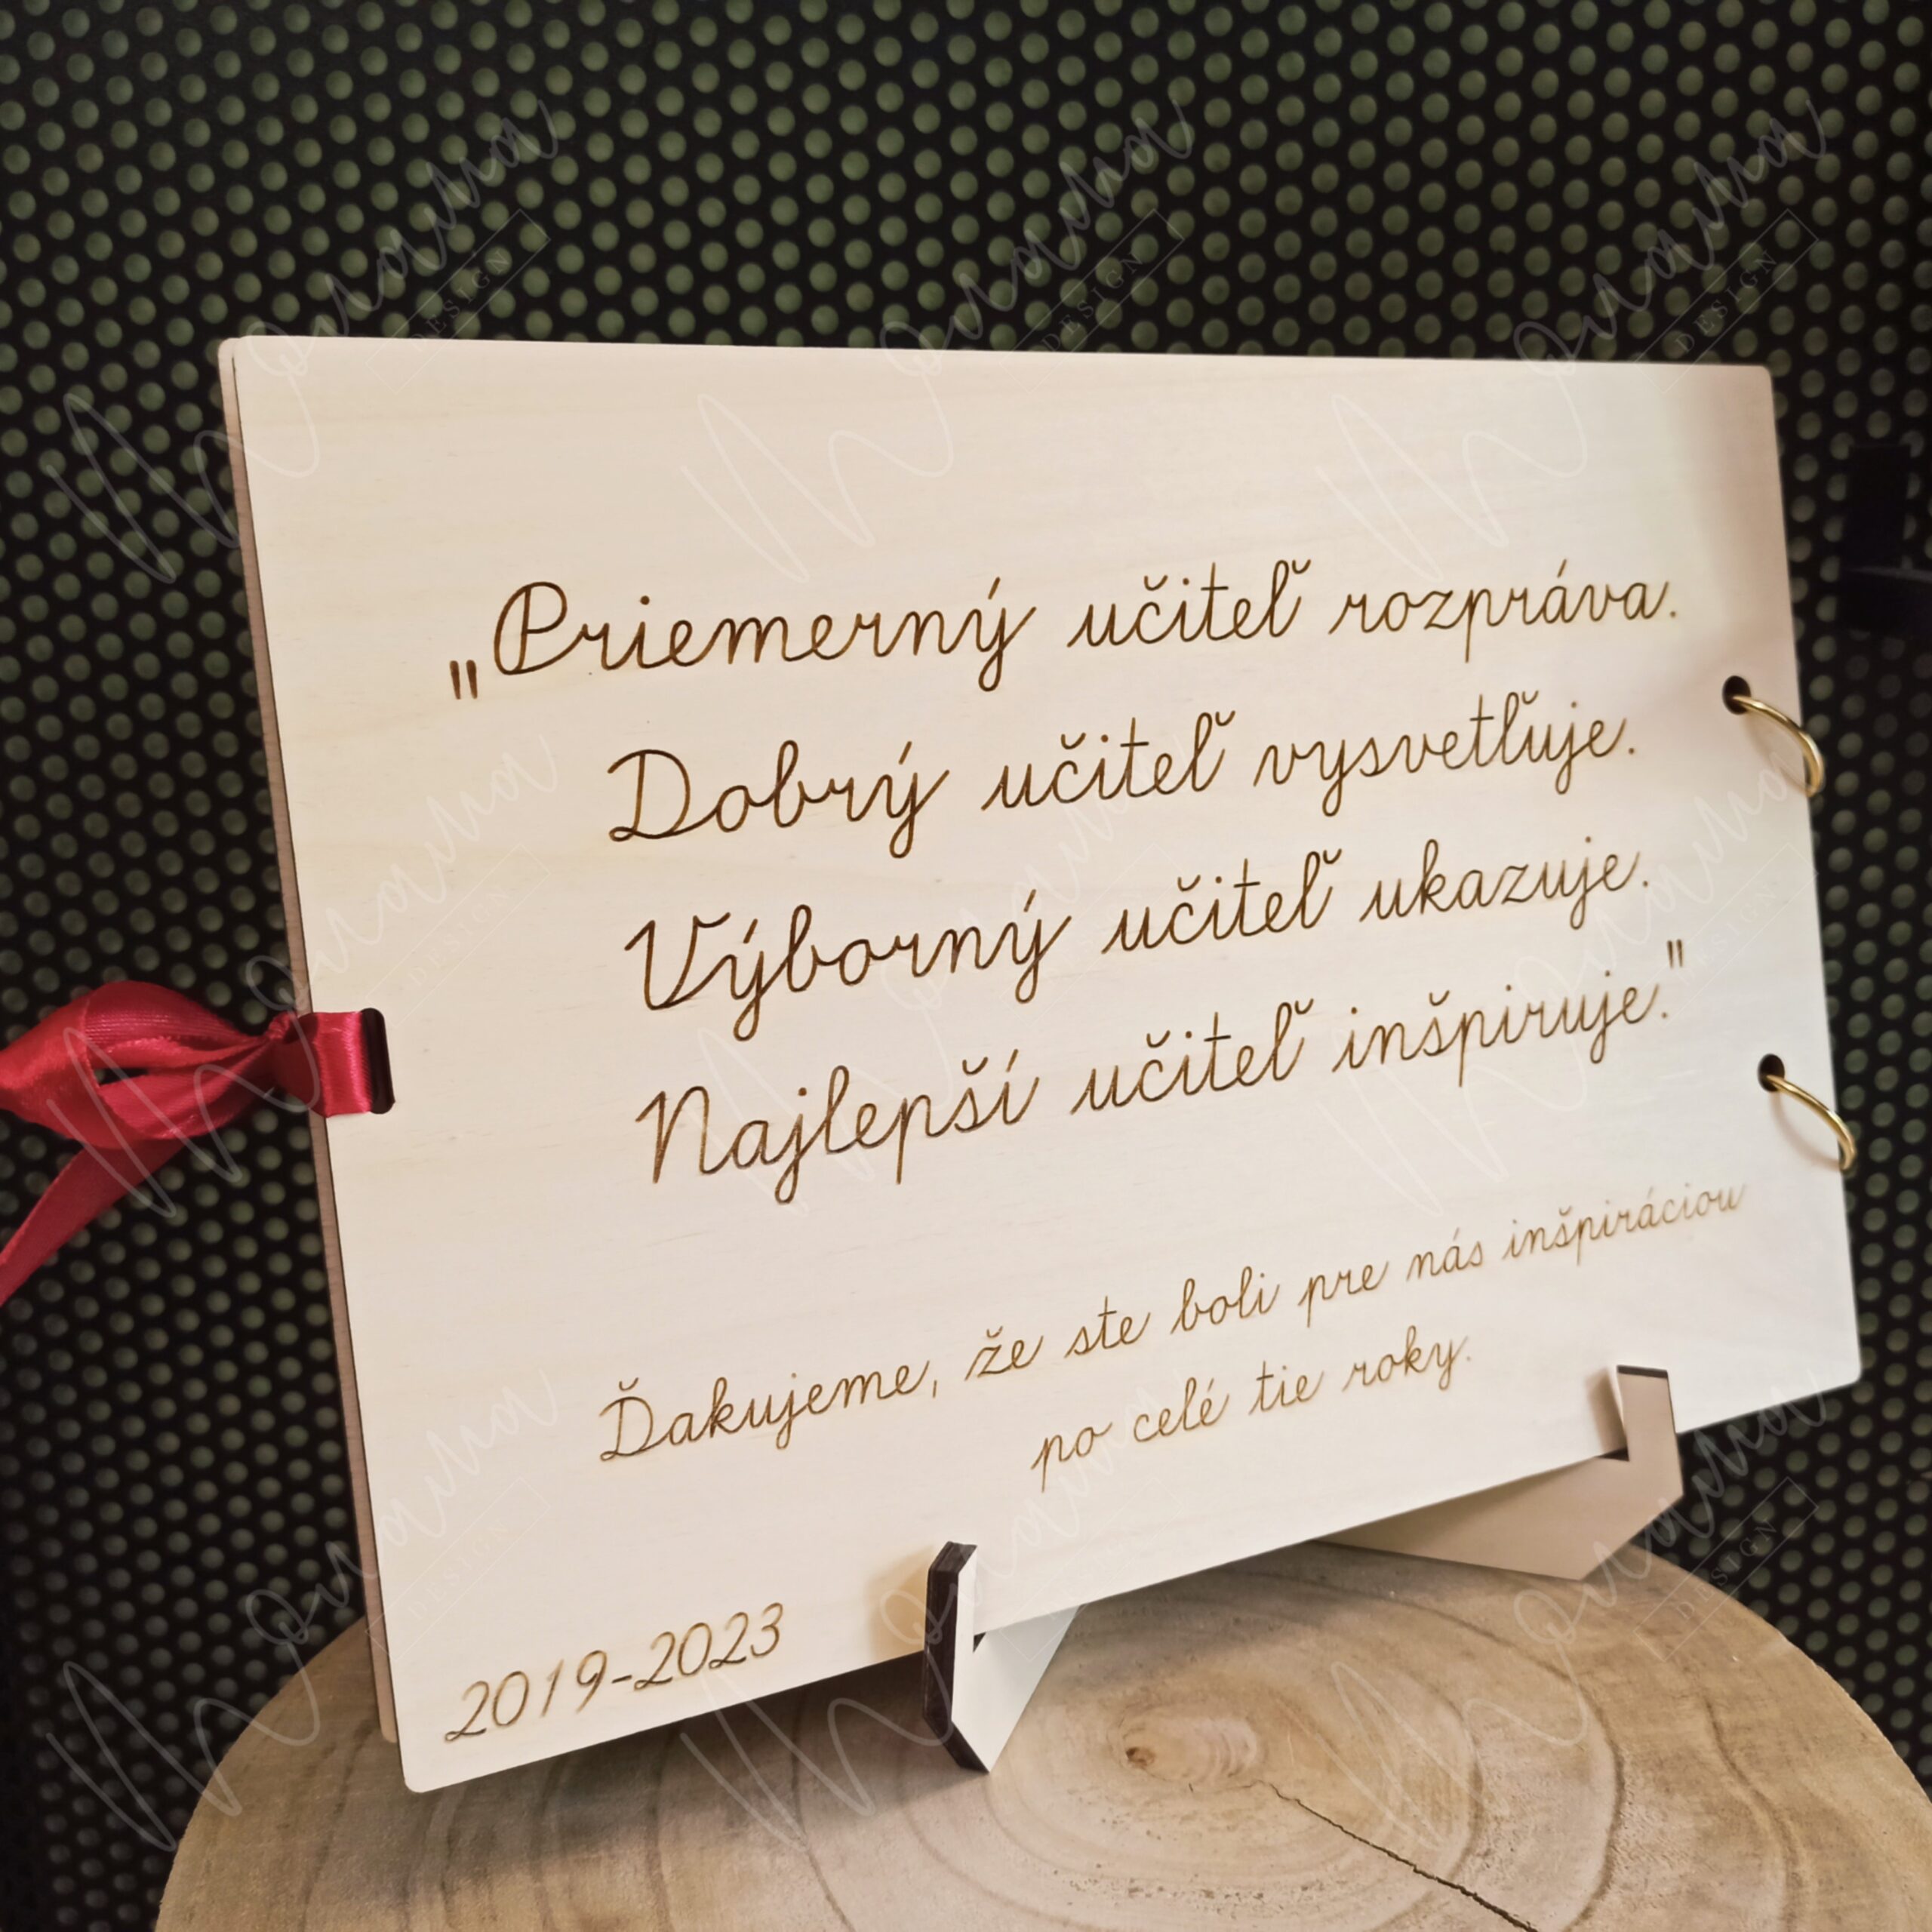 „Priemerný učiteľ rozpráva.
Dobrý učiteľ vysvetľuje.
Výborný učiteľ ukazuje.
Najlepší učiteľ inšpiruje."
Ďakujeme, že ste boli pre nás inšpiráciou
po celé tie roky.
2019-2023
DESIGN